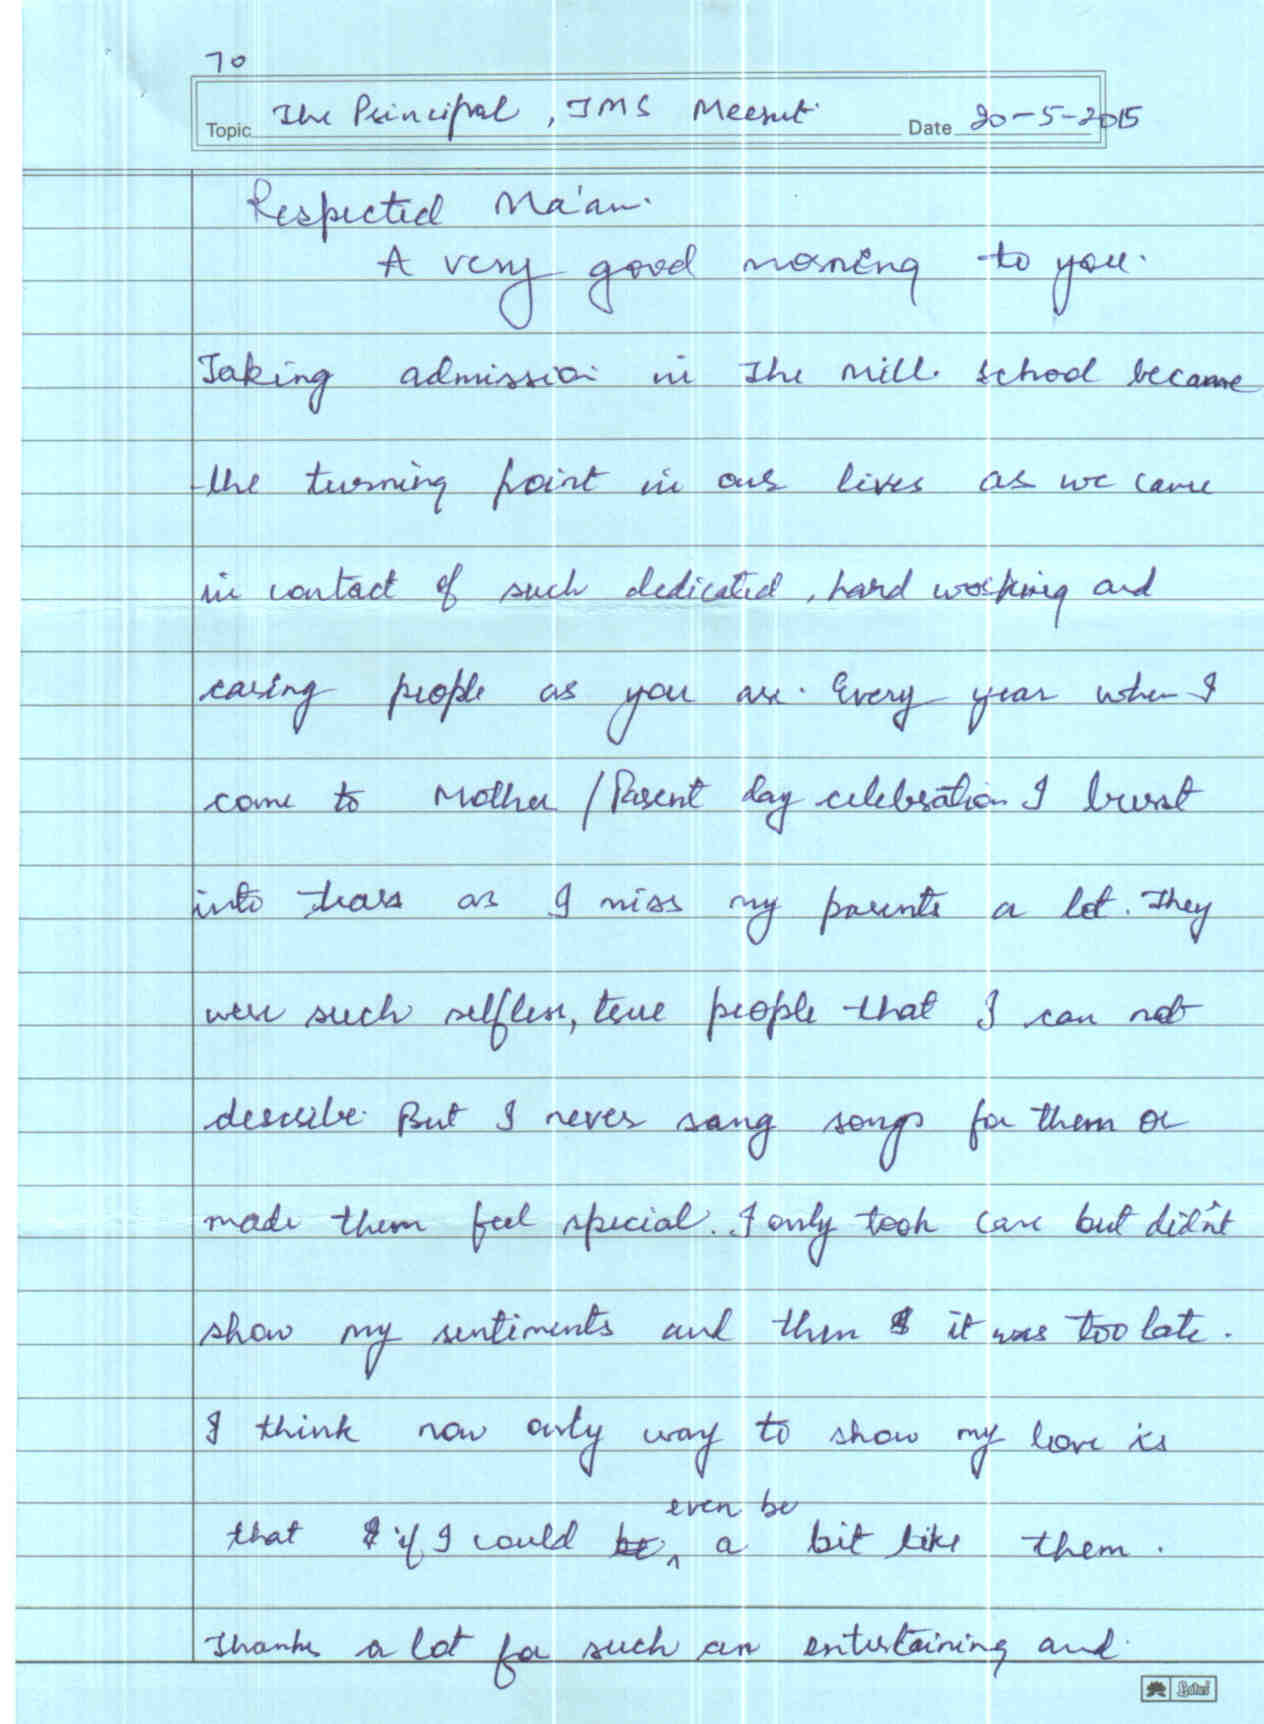 To
Topic The Principal, TMS Meerut. Date 20-5-2015
Respected Ma'am.
A very good morning to you.
Taking admission in The Mill. school became
the turning point in our lives as we came
in contact of such dedicated, hard working and
caring people as you are. Every year when I
come to Mother / Parent day celebration I burst
into tears as I miss my parents a lot. They
were such selfless, true people that I can not
describe. But I never sang songs for them or
made them feel special. I only took care but didn't
show my sentiments and then it was too late.
I think now only way to show my love is
even be
that if I could be ^ a bit like them.
Thanks a lot for such an entertaining and
Lotus